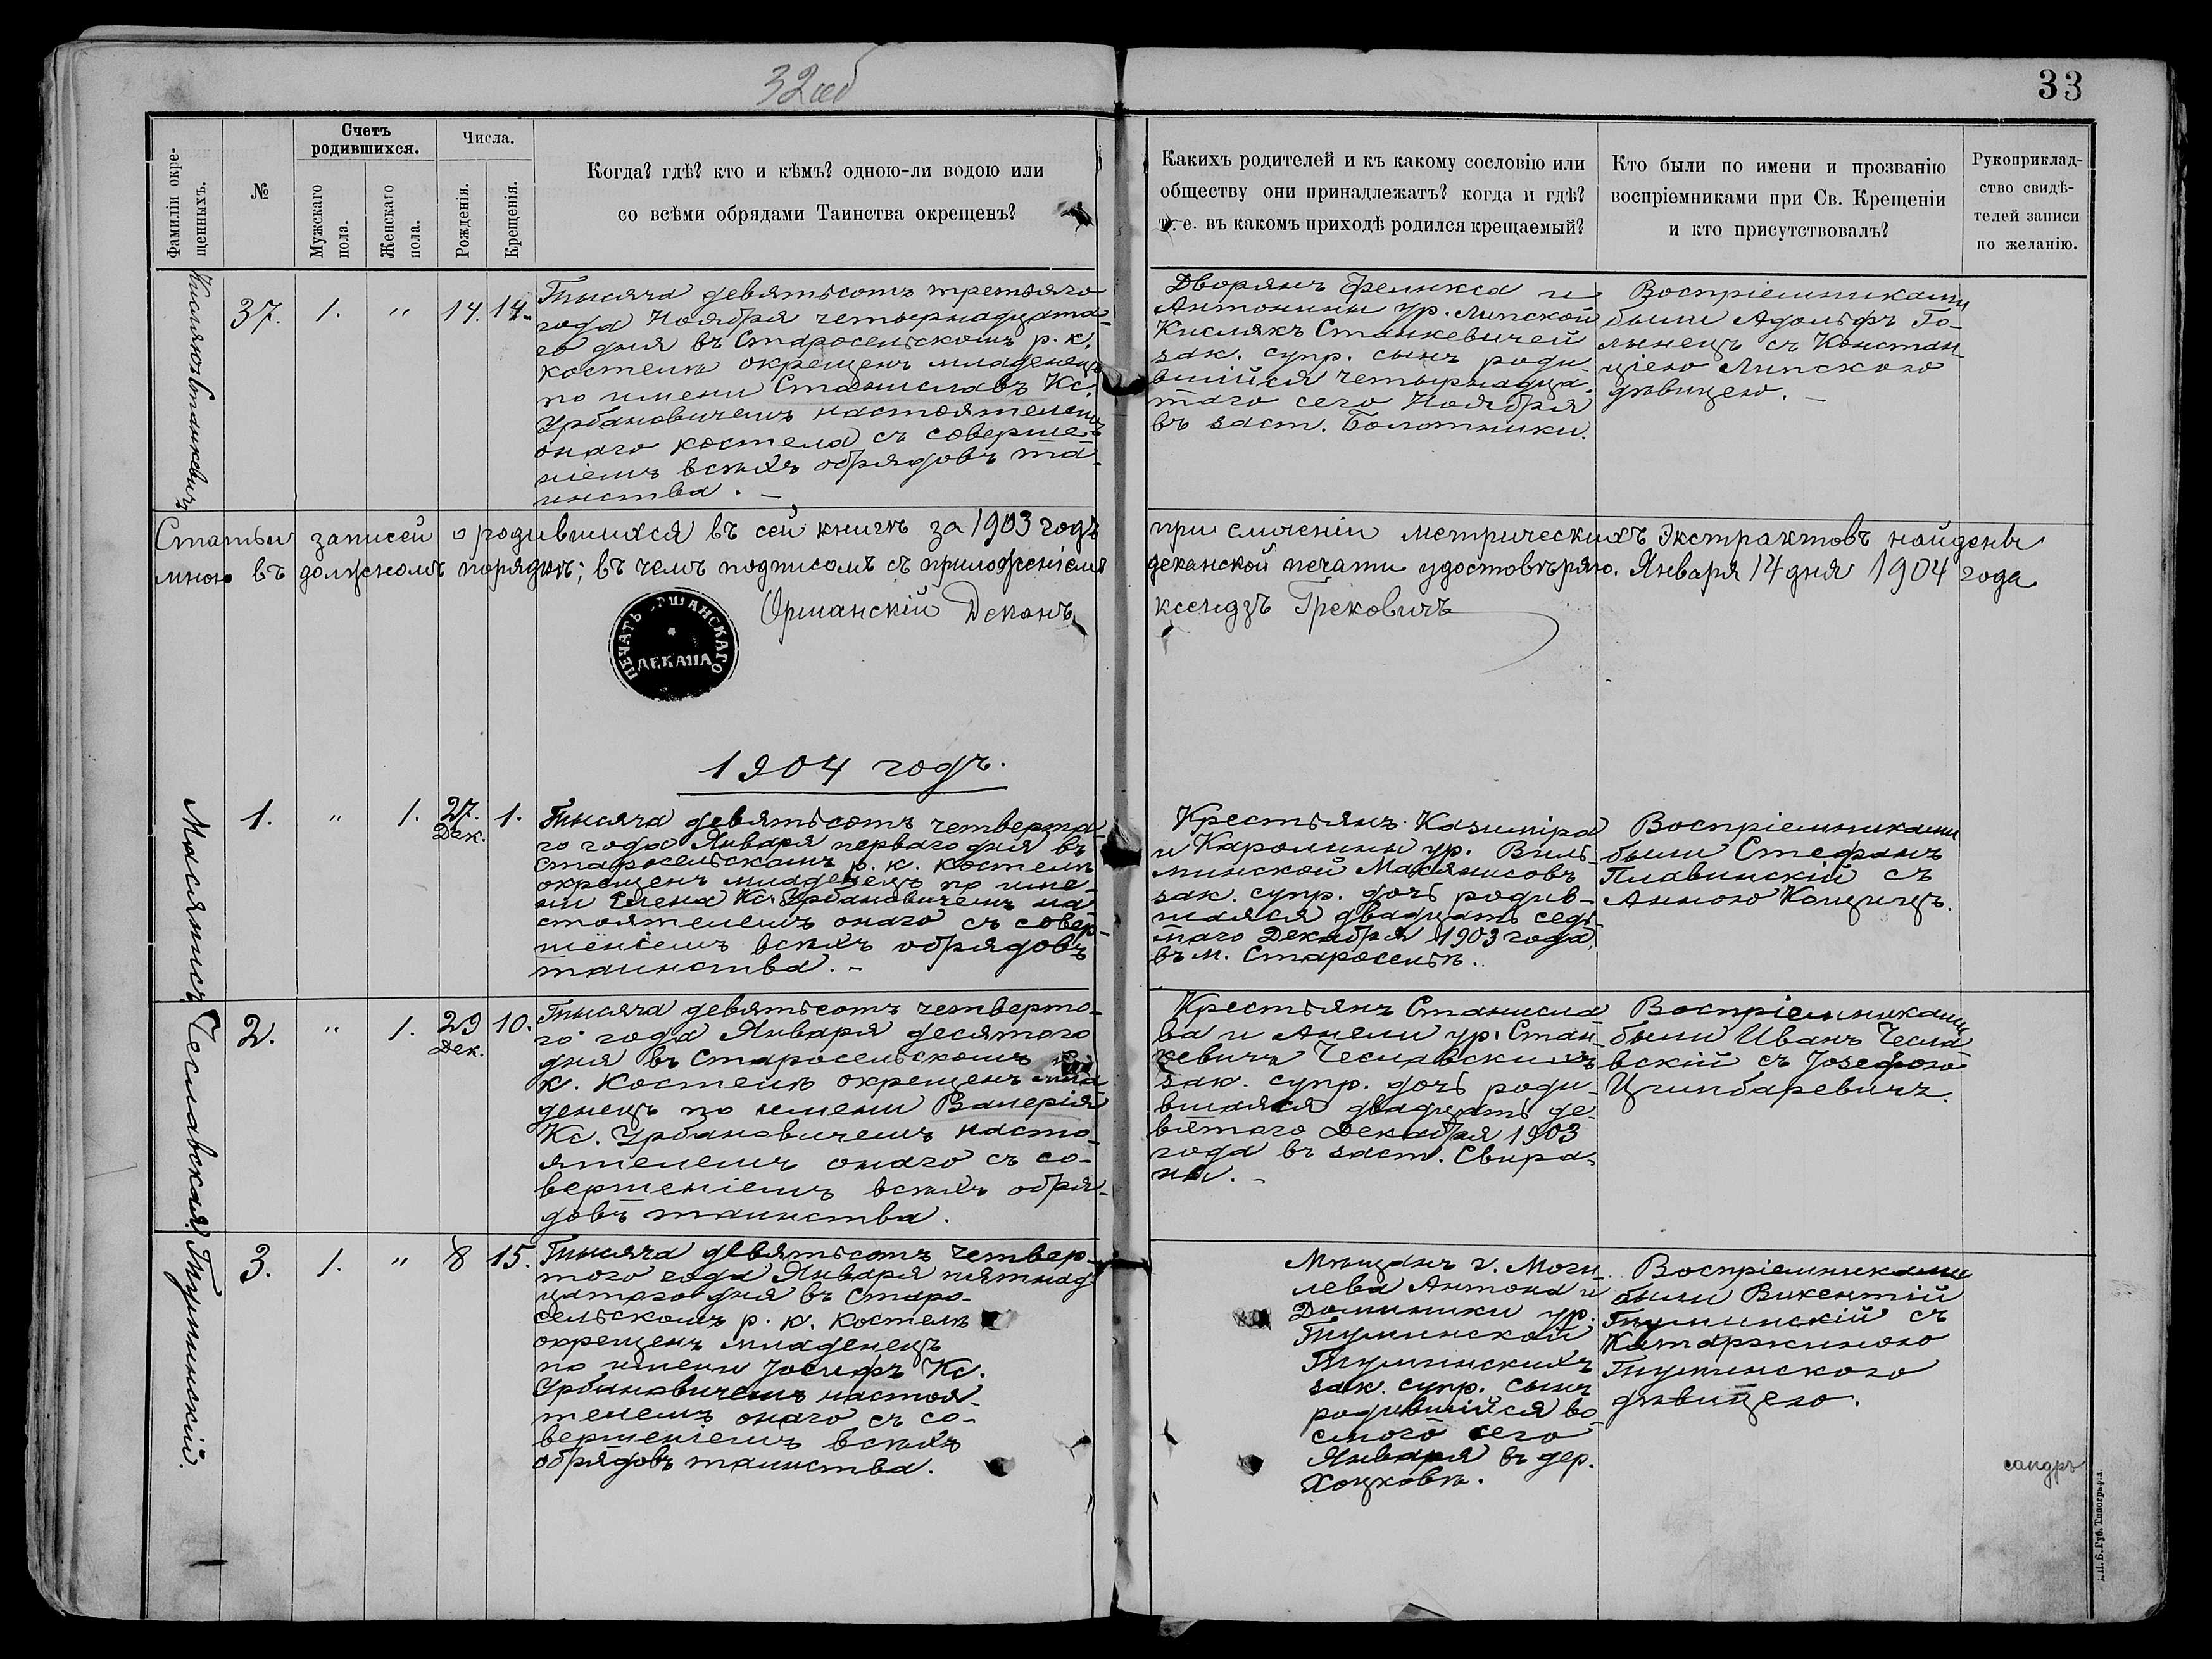 32 об
33
Фамиліи окре-
щенныхъ.
№
Счетъ
родившихся.
Мужскаго
пола.
Женскаго
пола.
Числа.
Рожденія.
Крещенія.
Когда? гдѣ? кто и кѣмъ? одною-ли водою или
со всѣми обрядами Таинства окрещенъ?
Какихъ родителей и къ какому сословію или
обществу они принадлежатъ? когда и гдѣ?
т. е. въ какомъ приходѣ родился крещаемый?
Кто были по имени и прозванію
воспріемниками при Св. Крещеніи
и кто присутствовалъ?
Рукоприклад-
ство свидѣ-
телей записи
по желанію.
Кислякъ Станкевичъ
37. 1. " 14. 14.
Тысяча девятьсотъ третьяго
года Ноября четырнадцата-
го дня въ Старосельскомъ р. к.
костелѣ окрещенъ младенецъ
по имени Станиславъ Кс.
Урбановичемъ настоятелемъ
онаго костела съ соверше-
ніемъ всѣхъ обрядовъ та-
инства. –
Дворянъ Феликса и
Антонины ур. Липской
Кислякъ Станкевичей
зак. супр. сынъ роди-
вшійся четырнадца-
таго сего Ноября
въ заст. Болотники.
Воспріемниками
были Адольфъ Го-
лынецъ съ Констан-
ціею Липскою
дѣвицею. –
Статьи записей о родившихся въ сей книгѣ за 1903 годъ при сличеніи метрическихъ экстрактовъ найдены
мною въ должномъ порядкѣ; въ чемъ подписомъ съ приложеніемъ деканской печати удостовѣряю. Января 14 дня 1904 года
Оршанскій Деканъ ксендзъ Грековичъ
ПЕЧАТЬ ОРШАНСКАГО
ДЕКАНА
1904 годъ.
Масянисъ
1. " 1. 27. Дек. 1.
Тысяча девятьсотъ четверта-
го года Января перваго дня въ
Старосельскомъ р. к. костелѣ
окрещенъ младенецъ по име-
ни Елена Кс. Урбановичемъ на-
стоятелемъ онаго съ совер-
шеніемъ всѣхъ обрядовъ
таинства. –
Крестьянъ Казиміра
и Каролины ур. Виль-
минской Масянисовъ
зак. супр. дочь родив-
шаяся двадцать седь-
маго Декабря 1903 года
въ м. Староселье.
Воспріемниками
были Стефанъ
Плавинскій съ
Анною Кощицъ.
Чеславская.
2. " 1. 29 Дек. 10.
Тысяча девятьсотъ четверта-
го года Января десятаго
дня въ Старосельскомъ р.
к. костелѣ окрещенъ мла-
денецъ по имени Валерія
Кс. Урбановичемъ насто-
ятелемъ онаго съ со-
вершеніемъ всѣхъ обря-
довъ таинства.
Крестьянъ Станисла-
ва и Анели ур. Стан-
кевичъ Чеславскихъ
зак. супр. дочь роди-
вшаяся двадцать де-
вятаго Декабря 1903
года въ заст. Свира-
ни. –
Воспріемниками
были Иванъ Чесла-
вскій съ Јозефою
Цимбаревичъ.
Тушинскій.
3. 1. " 8 15.
Тысяча девятьсотъ четвер-
таго года Января пятнад-
цатаго дня въ Старо-
сельскомъ р. к. костелѣ
окрещенъ младенецъ
по имени Јосифъ Кс.
Урбановичемъ настоя-
телемъ онаго съ со-
вершеніемъ всѣхъ
обрядовъ таинства.
Мѣщанъ г. Моги-
лева Антона и
Доминики ур.
Тушинской
Тушинскихъ
зак. супр. сынъ
родившійся во-
сьмого сего
Января въ дер.
Хоцковѣ.
Воспріемниками
были Викентій
Тушинскій съ
Катаржиною
Тушинскою
дѣвицею.
сандръ
Губ. Типографія.